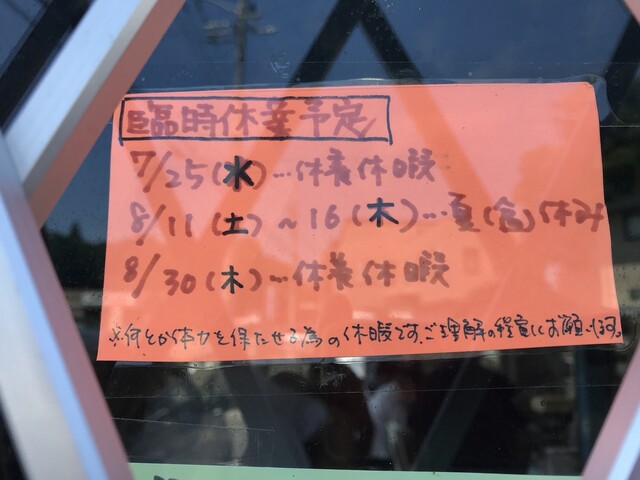 臨時休業予定
7/25(水)…休養休暇
8/11(土)~16(木)…夏(盆)休み
8/30(木)…休養休暇
※何とか体力を保たせる為の休暇です。ご理解の程宜しくお願い